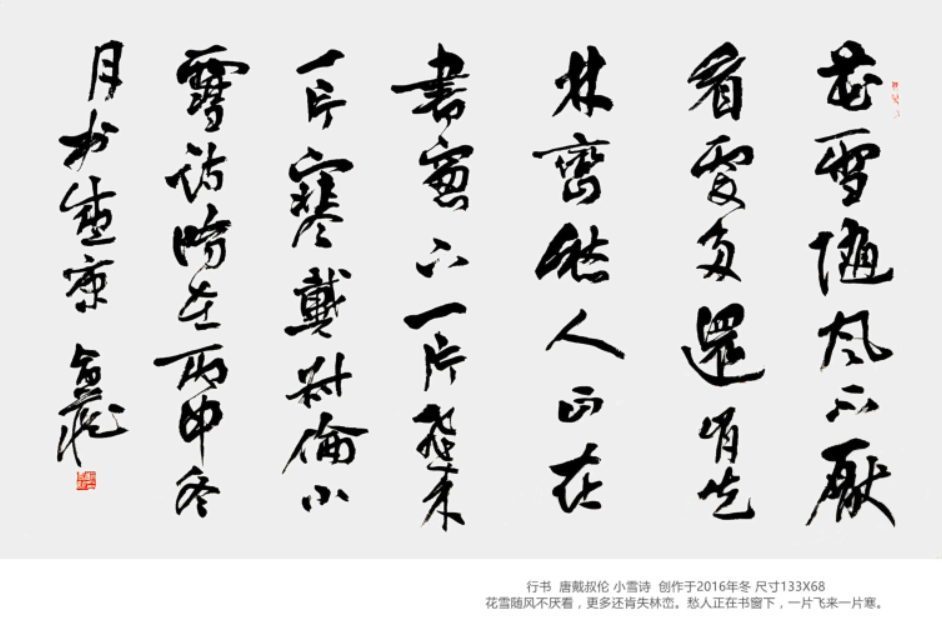 花雪隨風不厭
看更多還肯失
林巒愁人正在
書窗下一片飛來
一片寒戴叔倫小
雪詩時在丙申冬
月
行书 唐戴叔伦 小雪诗 创作于2016年冬 尺寸133X68
花雪随风不厌看，更多还肯失林峦。愁人正在书窗下，一片飞来一片寒。